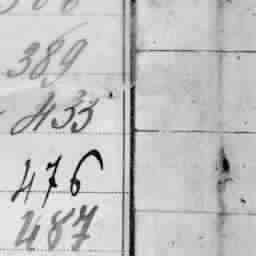 389
433
476
487